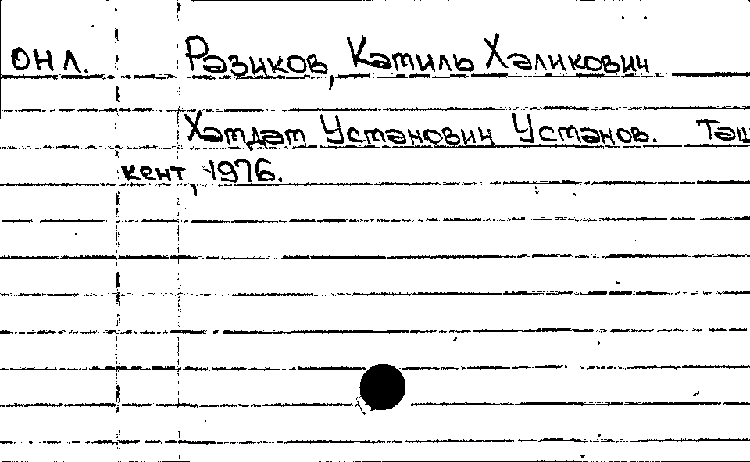 ОНЛ. Разиков, Камиль Халикович.
Хамдам Усманович Усманов. Таш
кент, 1976.